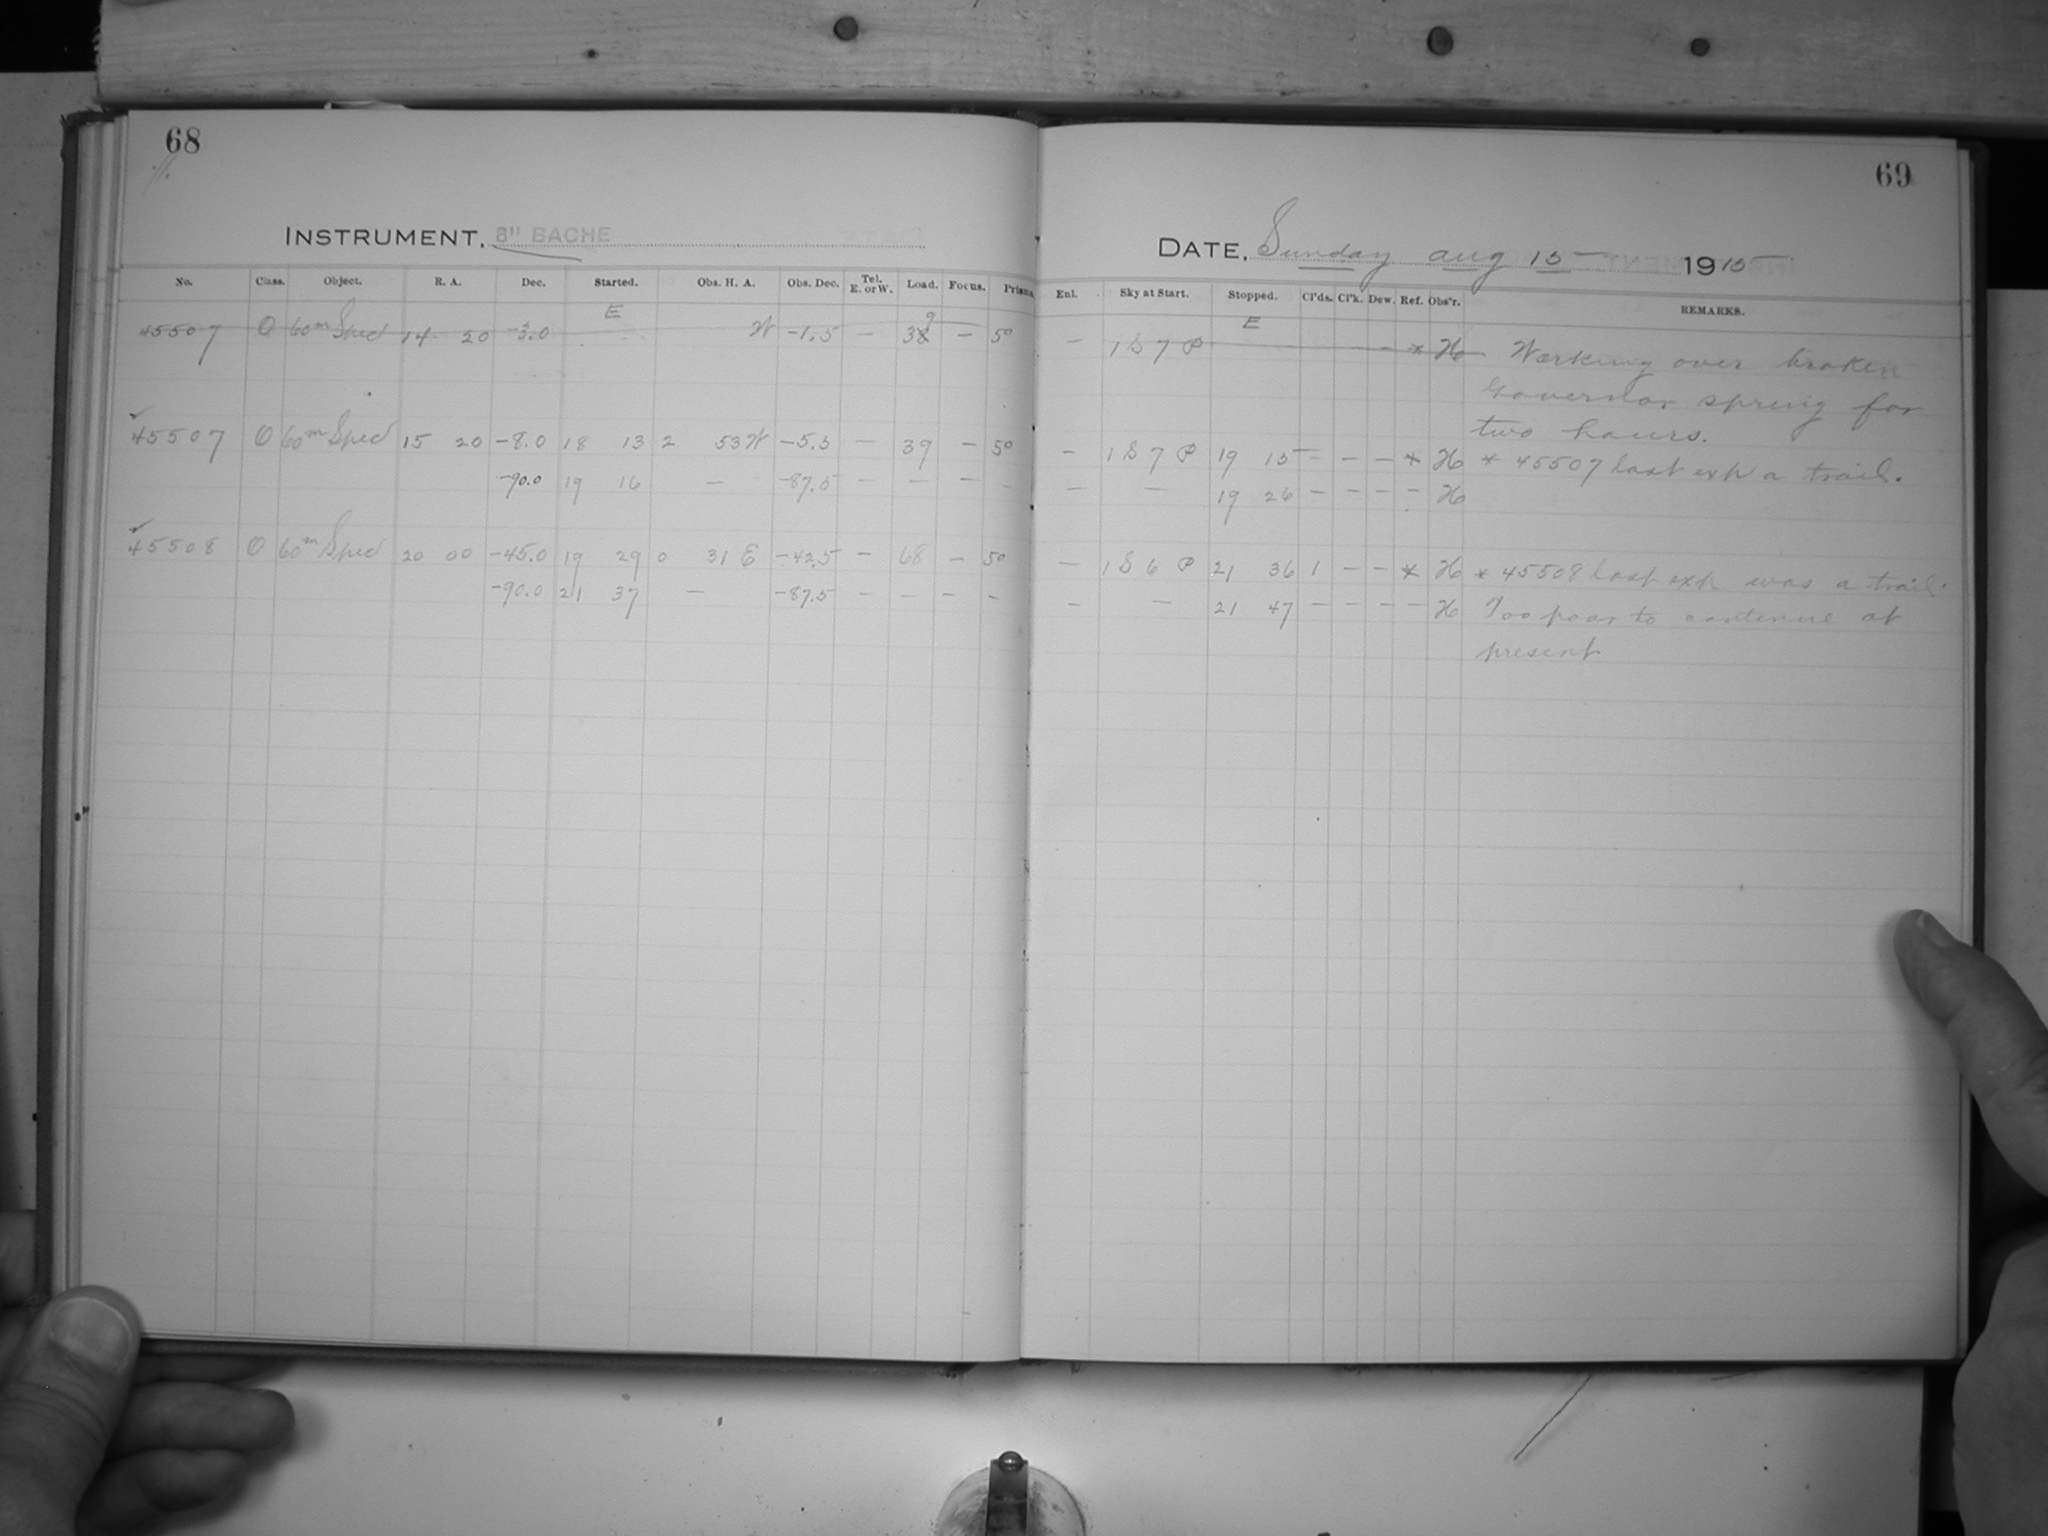 68
69
INSTRUMENT, 8" BACHE
DATE, Sunday Aug 15 1915
No. Class. Object. R. A. Dec. Started. Obs. H. A. Obs. Dec. Tel. E. or W. Load. Focus. Prisms
Enl. Sky at Start. Stopped. Cl'ds. Cl'k. Dew. Ref. Obs'r. REMARKS.
E
E
45507 O 60m Spec 14 20 -3.0 W -1.5 - 38 9 - 50 - 1 S 7 P - * H Working over broken
Governor spring for
two hours.
45507 O 60m Spec 15 20 -8.0 18 13 2 53 W -5.5 - 39 - 50 - 1 S 7 P 19 15 - - - * H * 45507 last exp a trail.
-90.0 19 16 - -87.5 - - - - - - 19 26 - - - - H
45508 O 60m Spec 20 00 -45.0 19 29 0 31 E -42.5 - 68 - 50 - 1 S 6 P 21 36 1 - - * H * 45508 last exp was a trail.
-90.0 21 37 - -87.5 - - - - - - 21 47 - - - - H Too poor to continue at
present